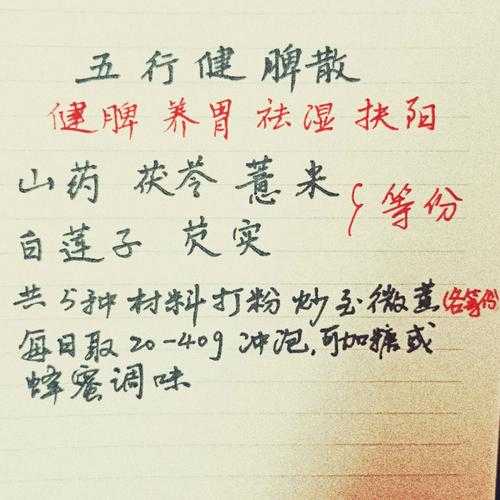 五行健脾散
健脾养胃祛湿扶阳
山药 茯苓 薏米
白莲子 芡实
等份
共5种材料打粉炒至微黄(各等份)
每日取20-40g冲泡,可加糖或
蜂蜜调味